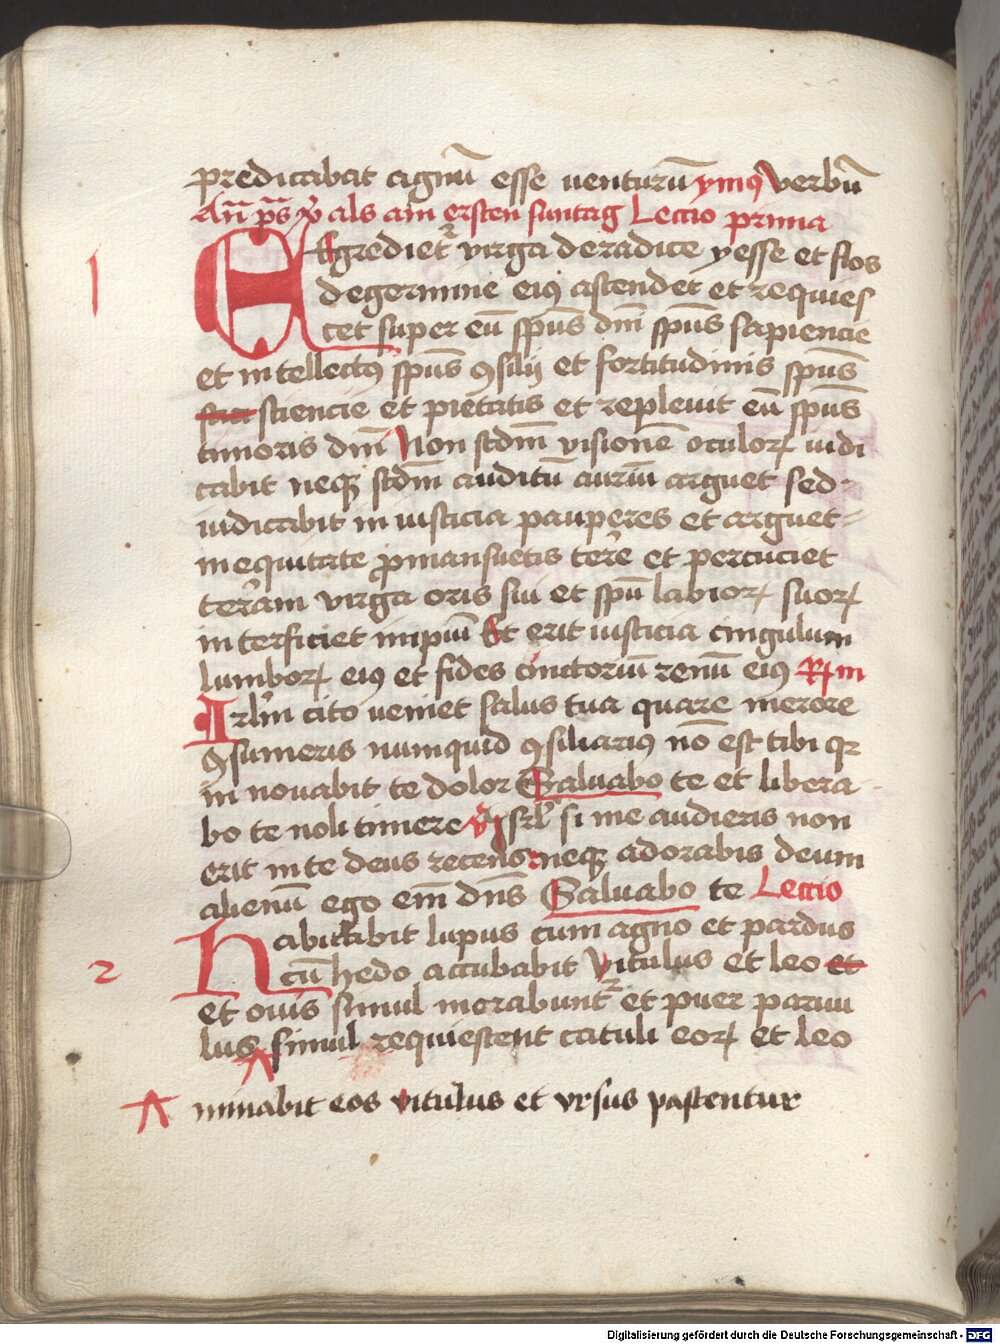 predicabat agnū esse uenturū ymꝰ verbū
Añ p̄s v̊ als am ersten suntag Lectio prima
1 Egrediet᷑ virga de radice yesse et flos
de germine eiꝰ ascendet et requies
cet super eū sp̄us dn̄i sp̄us sapiencie
et intellectꝰ sp̄us ꝯsilij et fortitudinis sp̄us
sciencie et pietatis et repleuit eū sp̄us
timoris dn̄i Non scd̄m visionē oculoꝝ iudi
cabit neqꝫ scd̄m auditū auriū arguet sed-
iudicabit in iusticia pauperes et arguet=
in equitate ꝓ mansuetis ter̄e et percuciet
ter̄am virga oris sui et sp̄u labioꝝ suoꝝ
interficiet impiū Et erit iusticia cingulum
lumboꝝ eiꝰ et fides cinctoriū renū eiꝰ R̄m
Irl̄m cito ueniet salus tua quare merore
ꝯsumeris numquid ꝯsiliariꝰ nō est tibi qr
in nouabit te dolor Saluabo te et libera-
bo te noli timere v̊ isrl̄ si me audieris non
erit in te deus recens neqꝫ adorabis deum
alienū ego em̄ dn̄s Saluabo te Lectio
2 Habitabit lupus cum agno et pardus
cū hedo accubabit Vitulus et leo et
et ouis simul morabunt᷑ et puer paruu
lus simul requiescent catuli eoꝝ et leo
minabit eos vitulus et vrsus pascentur
Digitalisierung gefördert durch die Deutsche Forschungsgemeinschaft - DFG